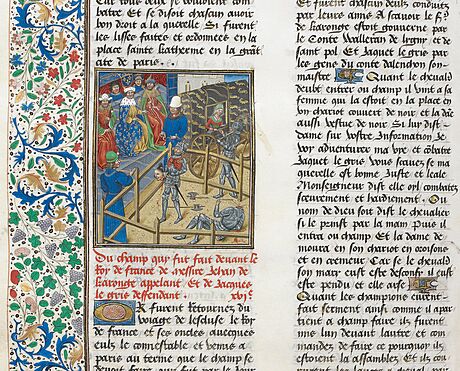 Car tous deux se vouloient com
batre Et se disoit chascun avoir
bon droit a la querelle Si furent
les lisses faittes et ordonnees en la
place sainte katherine en la grāt
cite de paris .
Du champ qui fut fait devant le
Roy de france de messire Jehan de
karonge appelant Et de Jacques
le gris deffendant . xvj.c
furent Retournez du
voiage de lescluse le roy
de france et ses oncles aveques
eulx le connestable et vemis a
paris au terme que le champ se
Et furent chascun deulx conduiz
par leurs amis A scavoir le sr
de karonge estoit gouverne par
le Conte Walleran de ligny et de
saint pol Et Jaquet le gris par
les gens du conte dalenchon son
maistre Quant le chevalr
deubt entrer ou champ il vint a sa
femme qui la estoit en la place en
vng chariot couvert de noir et la dāe
aussi vestue de noir Si luy dist
dame sur vostre Information Je
voy adventurer ma vye et cōbatre
Jaquet le gris vous scavez se ma
querelle est bonne Juste et leale
Monseigneur dist elle oyl combatez
seurement et hardiement . Ou
nom de dieu soit dist le chevalier
si le prinst par la main Puis il
entra ou champ Et la dame de
moura en son chariot en orisons
et en cremeur Car se le chevalr
son mary eust este desconfy il eust
este pendu et elle arse
Quant les champions eurent
fait serment ainsi comme il apar
tient a champ faire ilz furent
mis lun devant lautre et com
mandez de faire ce pourquoy ilz
estoient la assemblez Et ilz cou